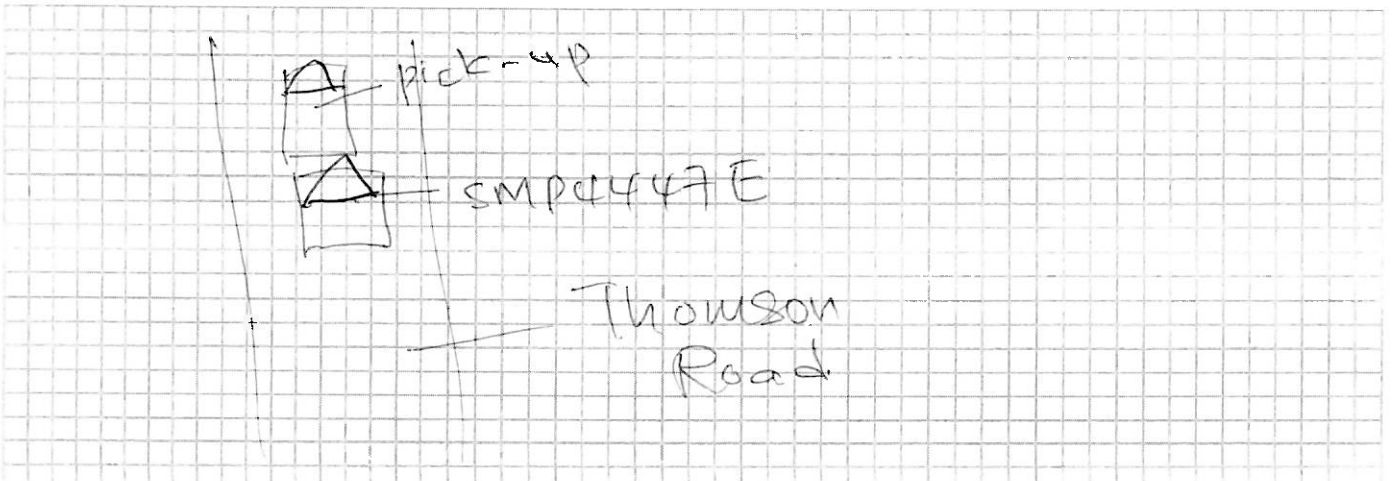 pick-up
SMP4447E
Thomson
Road.